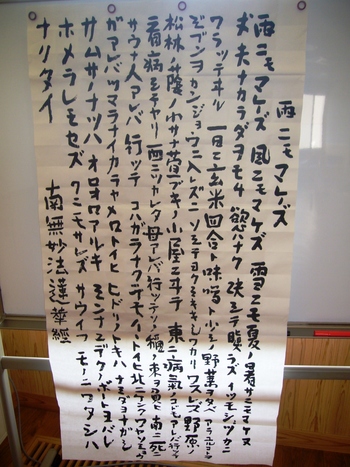 雨ニモマケズ
雨ニモマケズ 風ニモマケズ 雪ニモ夏ノ暑サニモマケヌ
丈夫ナカラダヲモチ 慾ハナク 決シテ瞋ラズ イツモシヅカニ
ワラッテヰル 一日ニ玄米四合ト味噌ト少シノ野菜ヲタベ アラユルコトヲ
ジブンヲカンジョウニ入レズニ ソシテヨクミキキシワカリ ワスレズ 野原ノ
松林ノ蔭ノ小サナ萱ブキノ小屋ニヰテ 東ニ病氣ノコドモアレバ行ッテ
看病シテヤリ 西ニツカレタ母アレバ行ッテソノ稲ノ束ヲ負ヒ 南ニ死ニ
サウナ人アレバ 行ッテ コハガラナクテモイヽトイヒ 北ニケンクヮヤソショウ
ガアレバ ツマラナイカラヤメロトイヒ ヒドリノトキハ ナミダヲナガシ
サムサノナツハ オロオロアルキ ミンナニデクノボートヨバレ
ホメラレモセズ クニモサレズ サウイフ モノニ ワタシハ
ナリタイ 南無妙法蓮華經